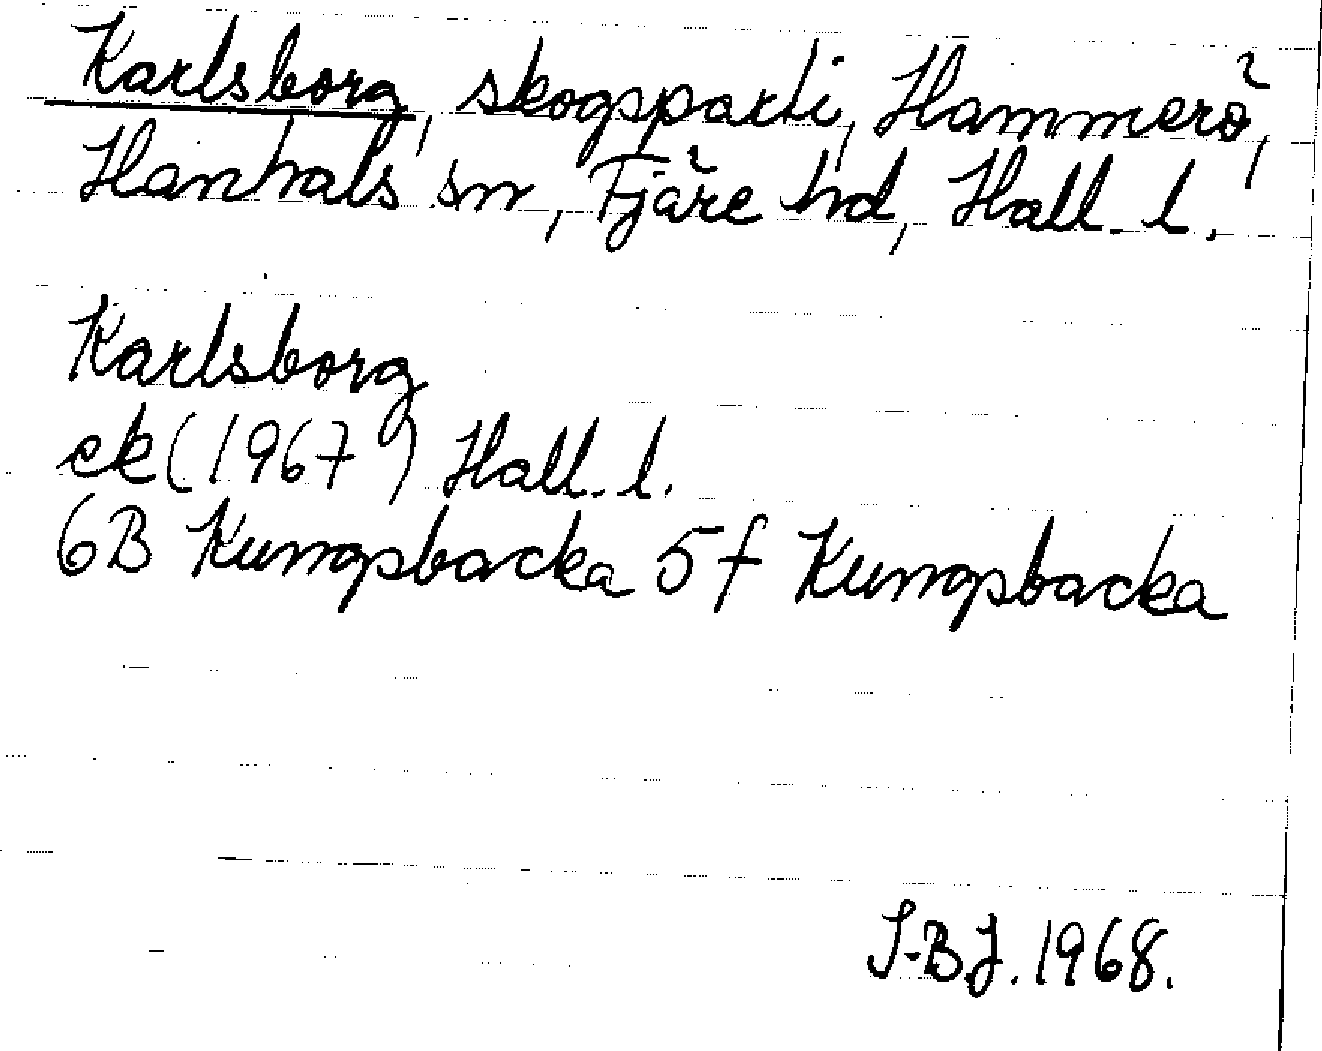 Karlsborg, skogsparti, Hammerö,
Hanhals sn, Fjäre hd, Hall. l.
Karlsborg
ek (1967) Hall. l.
6B Kungsbacka 5f Kungsbacka
I-B.J. 1968.